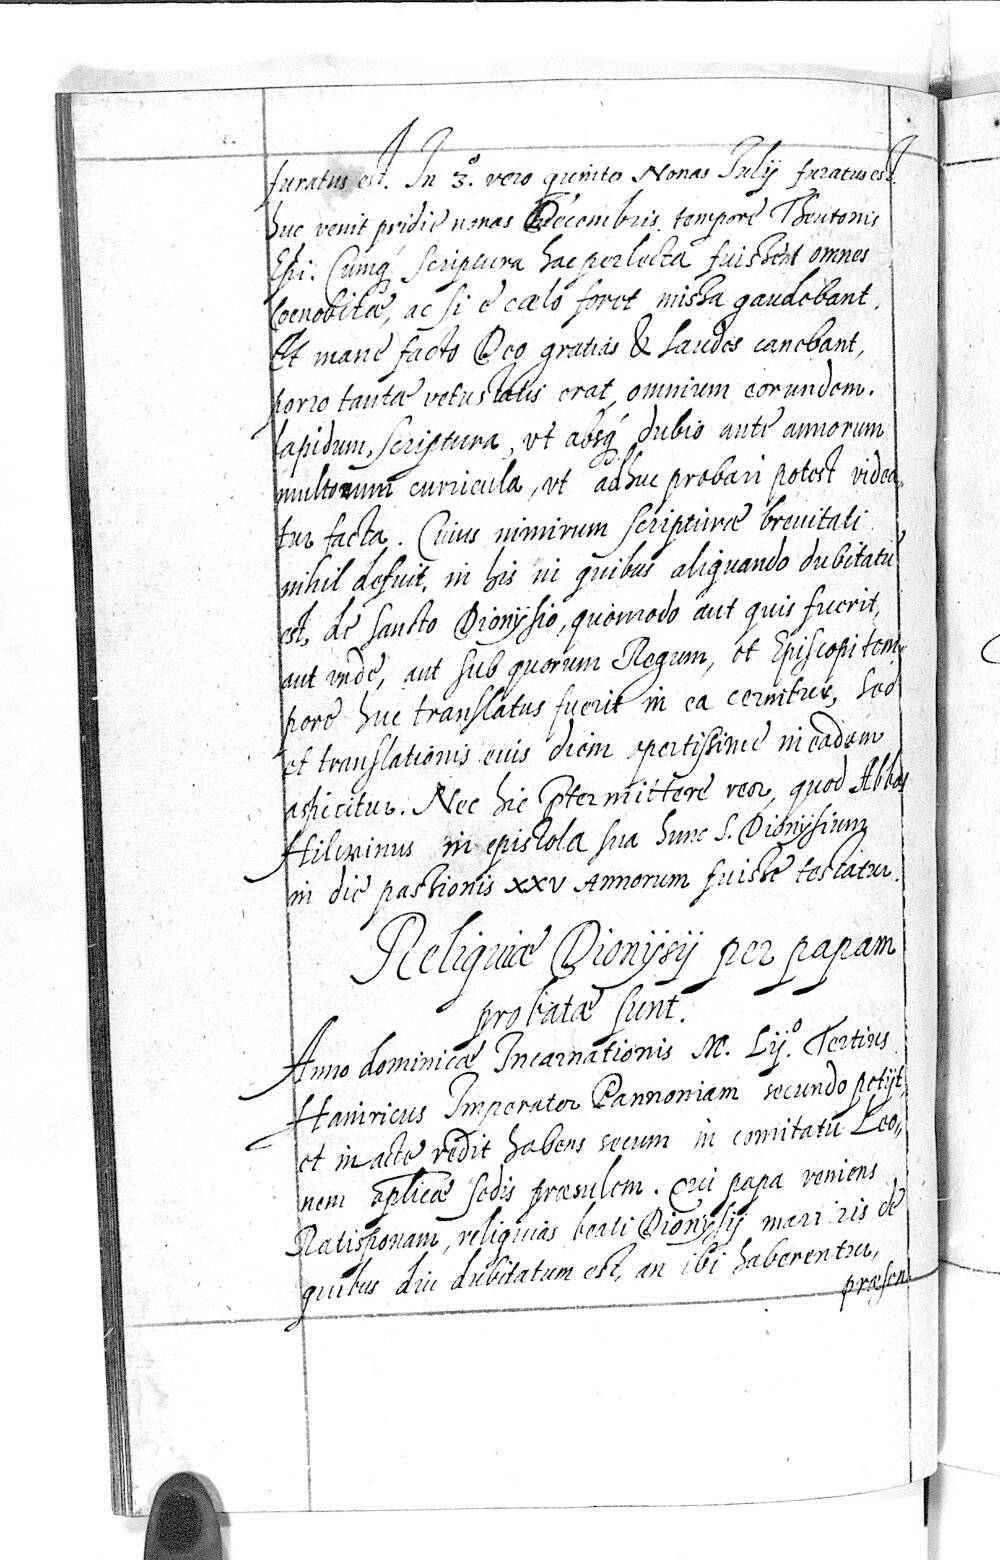 furatus est. In 3.º vero quinto Nonas Julij furatus est.
huc venit pridie nonas Decembris. tempore Theutonis
Epi. Cumq́ Scriptura hac perlecta fuissent omnes
Coenobitæ, ac si e cælo foret missa gaudebant.
Et mane facto Deo gratias & laudes canebant,
porro tantæ vetustatis erat, omnium eorundem.
lapidum, scriptura, vt absq́ dubio ante annorum
multorum curricula, vt adhuc probari potest videa„
tur facta. Cuius nimirum scripturæ breuitati
nihil defuit, in his in quibus aliquando dubitatũ
est, de Sancto Dionysio, quomodo aut quis fuerit,
aut vnde, aut sub quorum Regum, et Episcopi tem„
pore huc translatus fuerit in ea cernitur, Sed
et translationis euis diem apertissime in eadem
aspicitur. Nec hic ptermittere reor, quod Abbas
Hilwinus in epistola sua hunc S. Dionijsium
in die passionis XXV Annorum fuisse testatur.
Reliquiæ Dionijsij per papam
probatæ sunt.
Anno dominicæ Incarnationis M. Lij.º Tertius
Hainricus Imperator Pannoniam secundo petijt,
et in acte redit habens secum in comitatu Leo„
nem aplicæ sedis præsulem. Qui papa veniens
Ratisponam, reliquias beati Dionysij mariris de
quibus diu dubitatum est, an ibi haberentur,
præsen